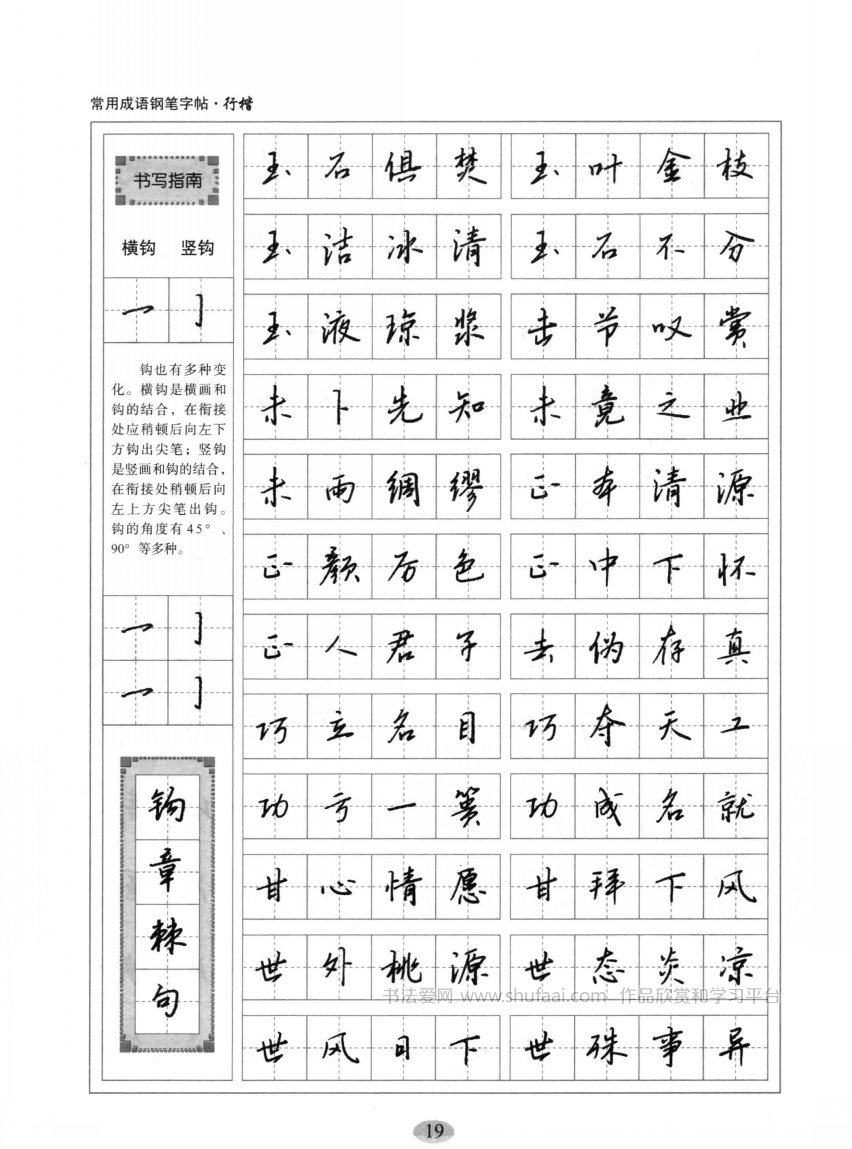 常用成语钢笔字帖·行楷
书写指南
横钩 竖钩
钩也有多种变
化。横钩是横画和
钩的结合，在衔接
处应稍顿后向左下
方钩出尖笔；竖钩
是竖画和钩的结合，
在衔接处稍顿后向
左上方尖笔出钩。
钩的角度有45°、
90°等多种。
钩
章
棘
句
玉石俱焚 玉叶金枝
玉洁冰清 玉石不分
玉液琼浆 击节叹赏
未卜先知 未竟之业
未雨绸缪 正本清源
正颜厉色 正中下怀
正人君子 去伪存真
巧立名目 巧夺天工
功亏一篑 功成名就
甘心情愿 甘拜下风
世外桃源 世态炎凉
世风日下 世殊事异
书法爱网 www.shufaai.com 作品欣赏和学习平台
19